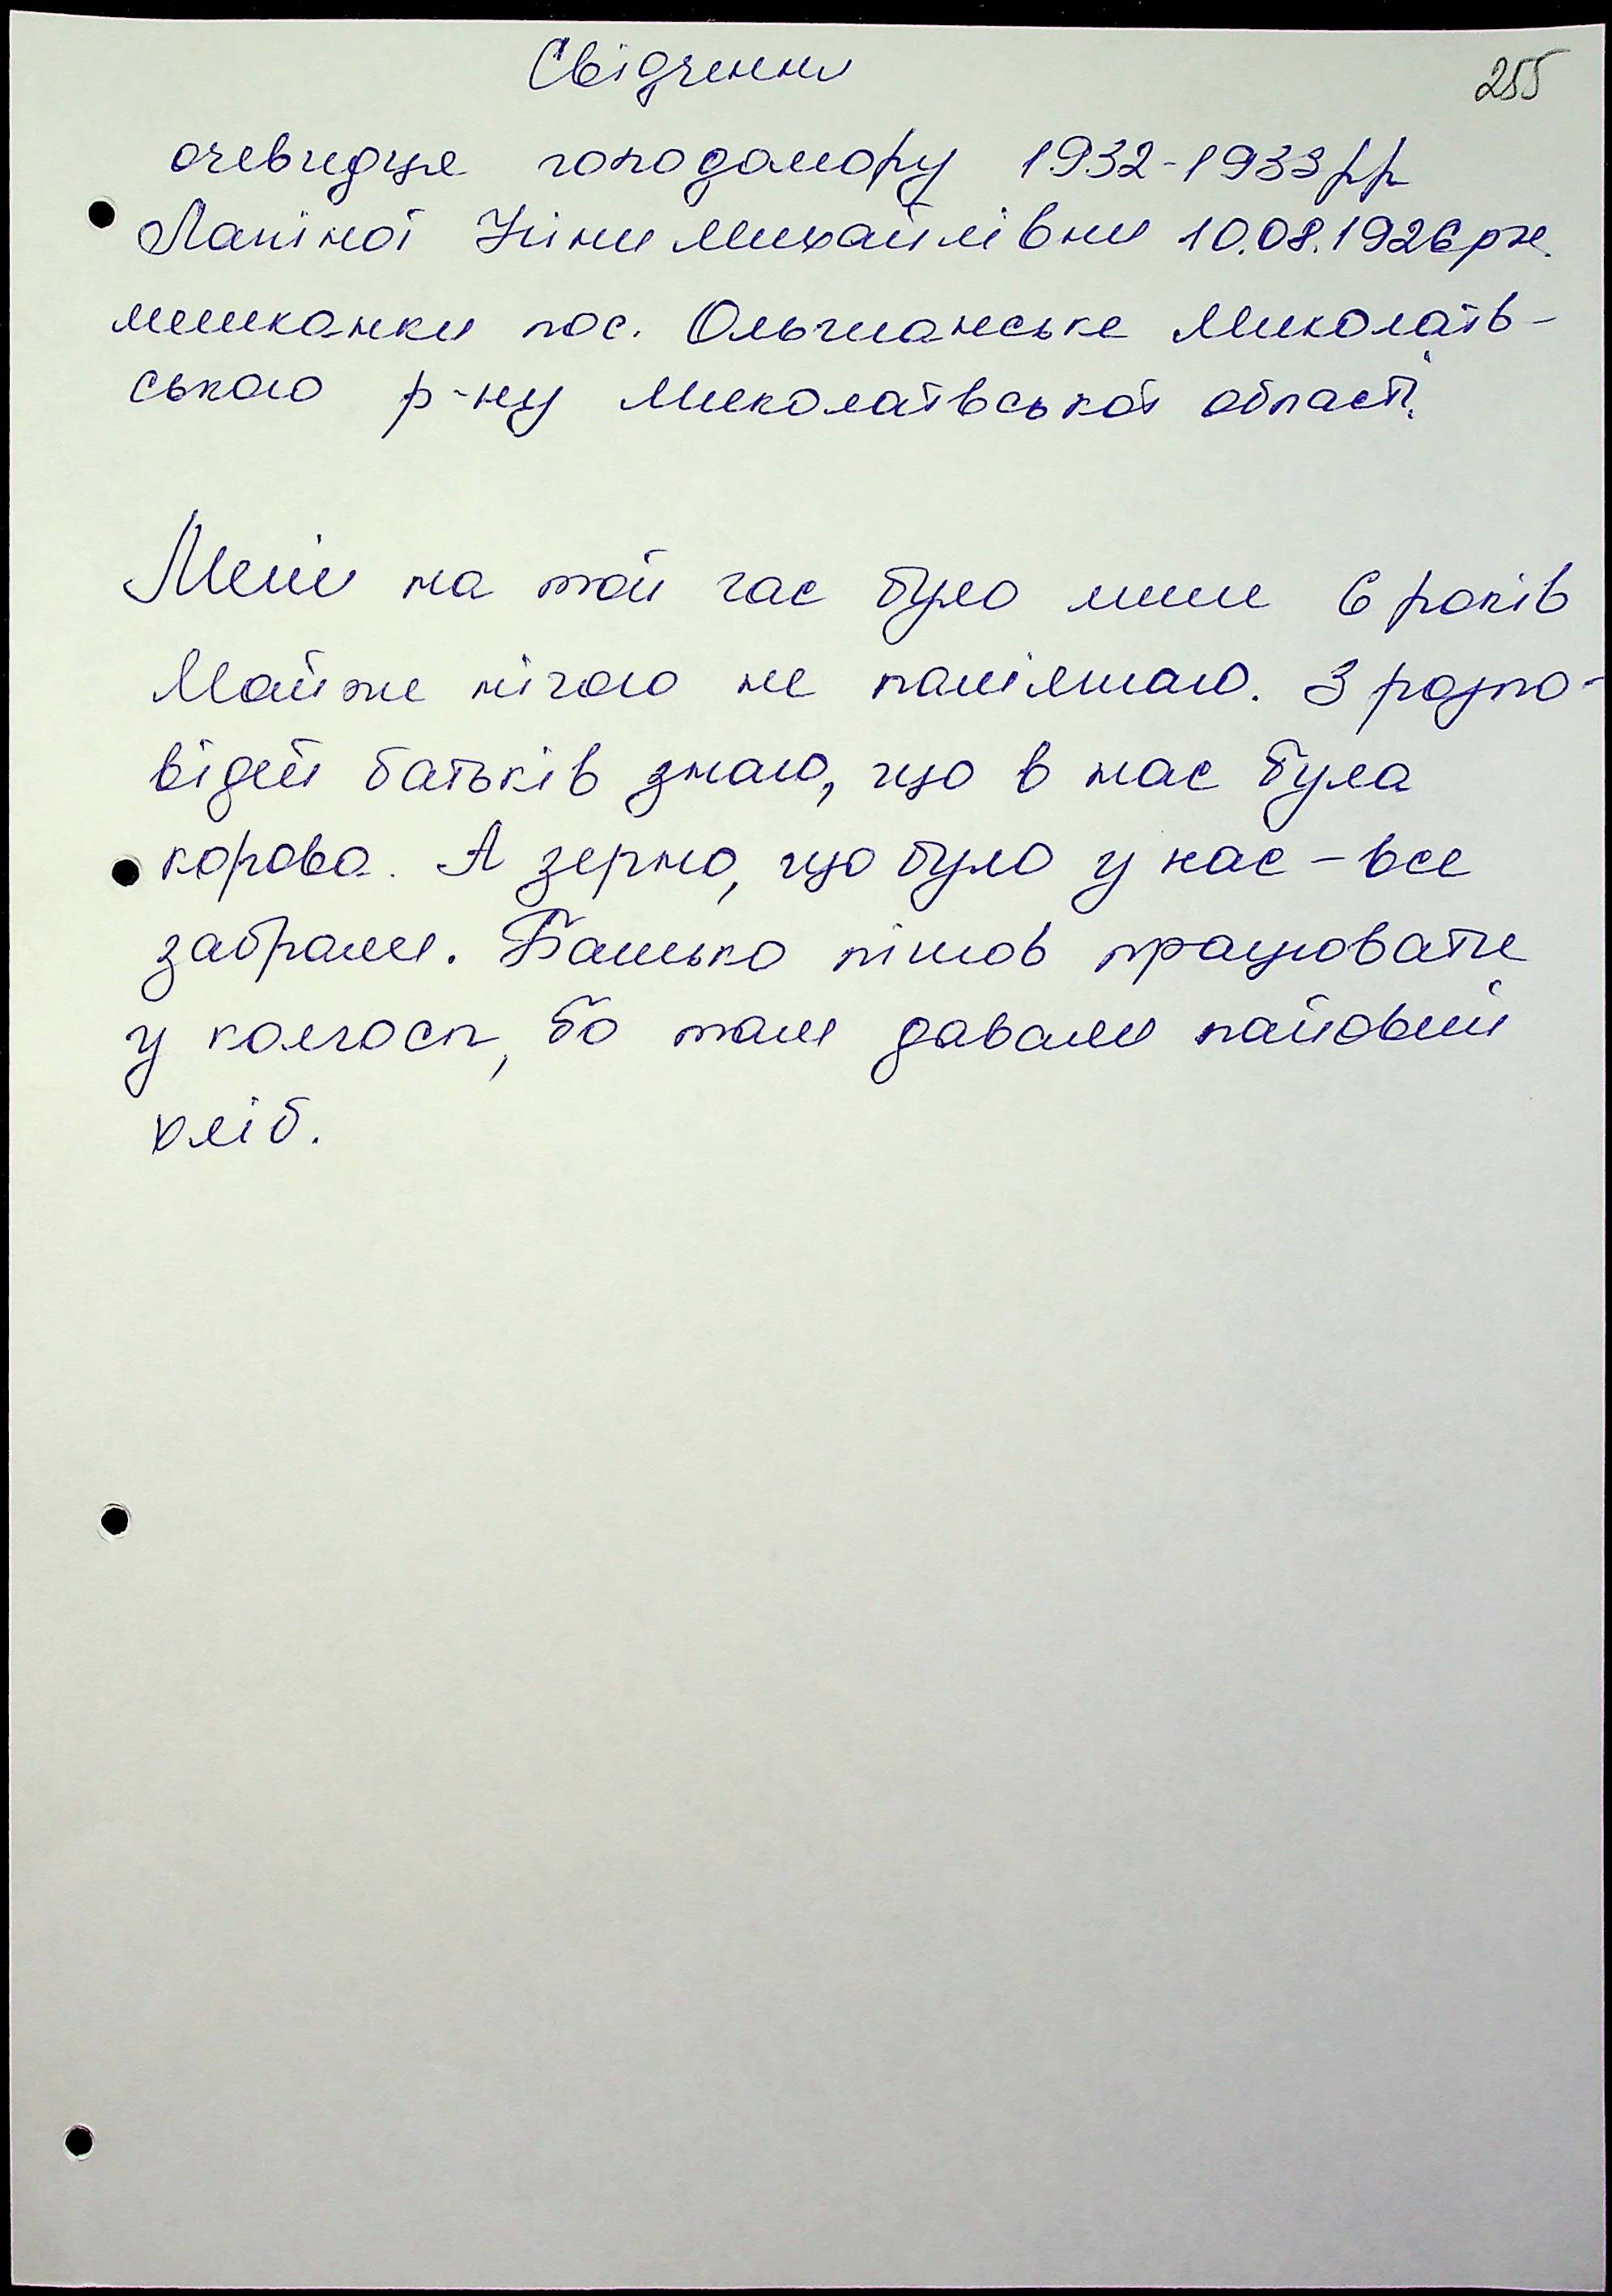 Свідчення
255
очевидця голодомору 1932-1933 рр
Лапіної Ніни Михайлівни 10.08.1926 рн.
мешканки пос. Ольшанське Миколаїв-
ського р-ну Миколаївської області.
Мені на той час було лише 6 років
Майже нічого не памілтаю. З розпо-
відей батьків знаю, що в нас була
корова. А зерно, що було у нас – все
забрали. Батько пішов працювати
у колгосп, бо там давали пайовий
хліб.